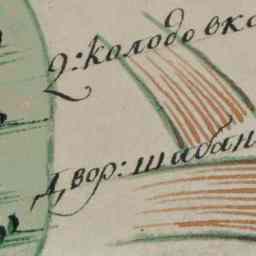 2: колодовка
двор: шабан